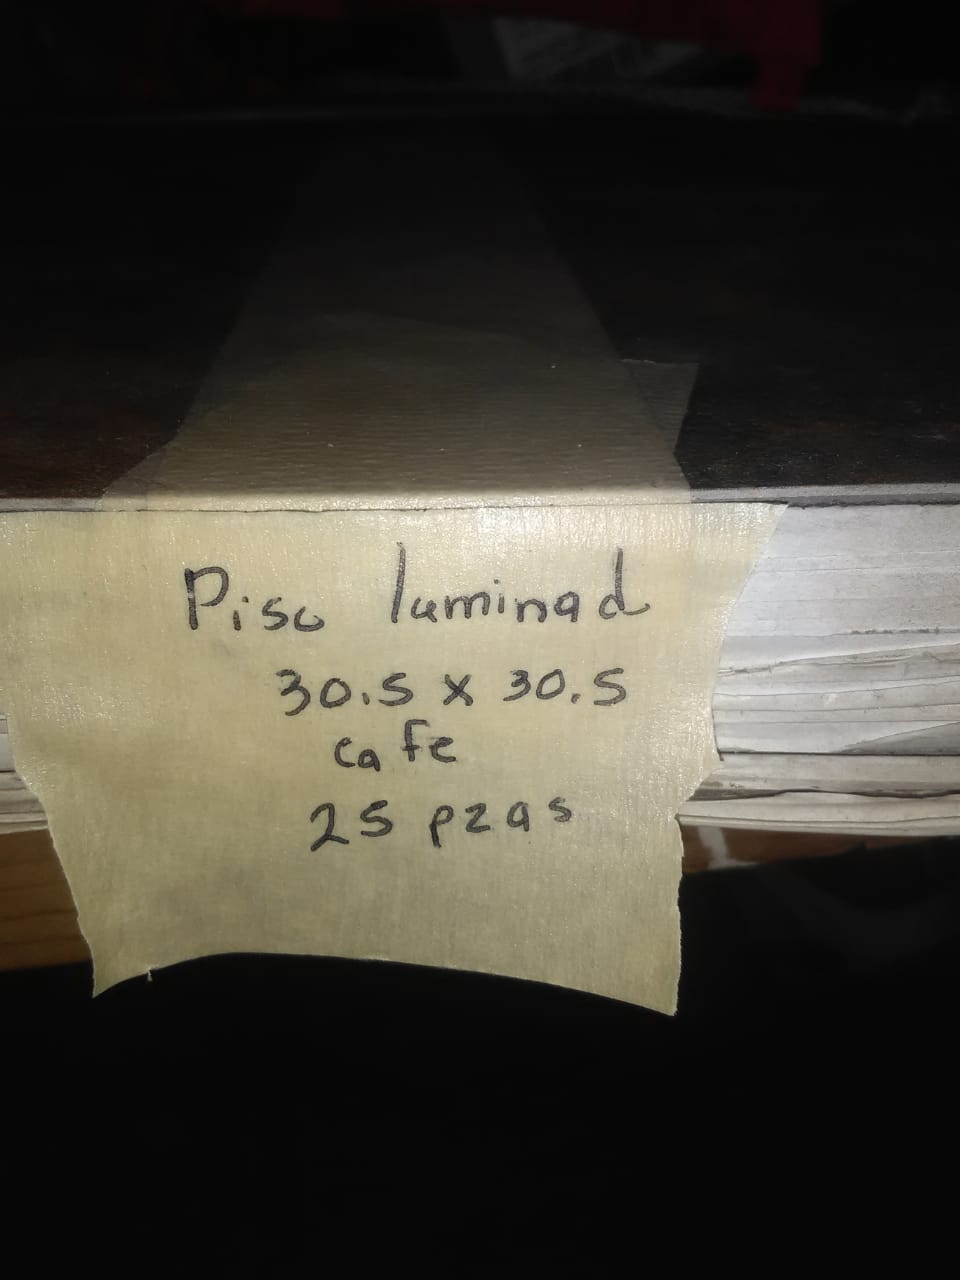 Piso luminad
30.5 x 30.5
cafe
25 pzas